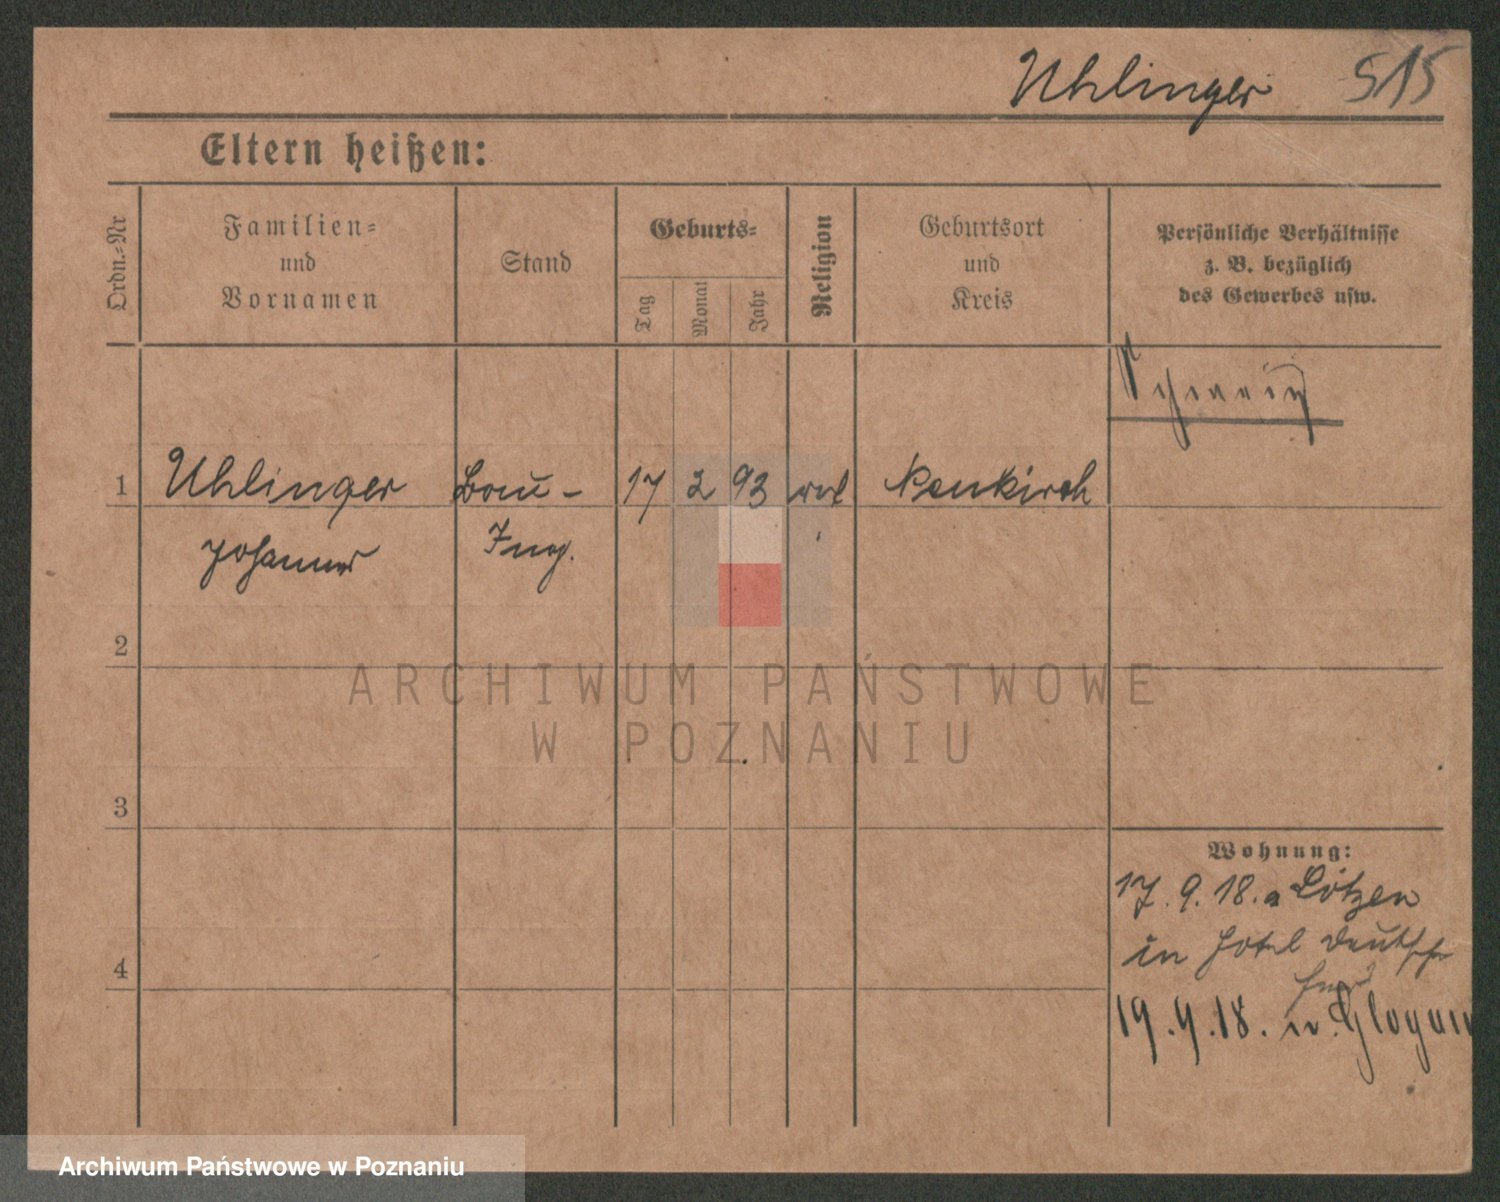 Uhlinger 515
Eltern heißen:
Ordn.-Nr
Familien-
und
Vornamen
Stand
Geburts-
Tag
Monat
Jahr
Religion
Geburtsort
und
Kreis
Persönliche Verhältnisse
z. B. bezüglich
des Gewerbes usw.
1 Uhlinger Bau- 17 2 93 Neukirch
Johannes Ing.
2
3
4
Wohnung:
17. 9. 18. a Lötzen
in Hotel deutsche
19. 9. 18. n. Glogau
ARCHIWUM PAŃSTWOWE
W POZNANIU
Archiwum Państwowe w Poznaniu